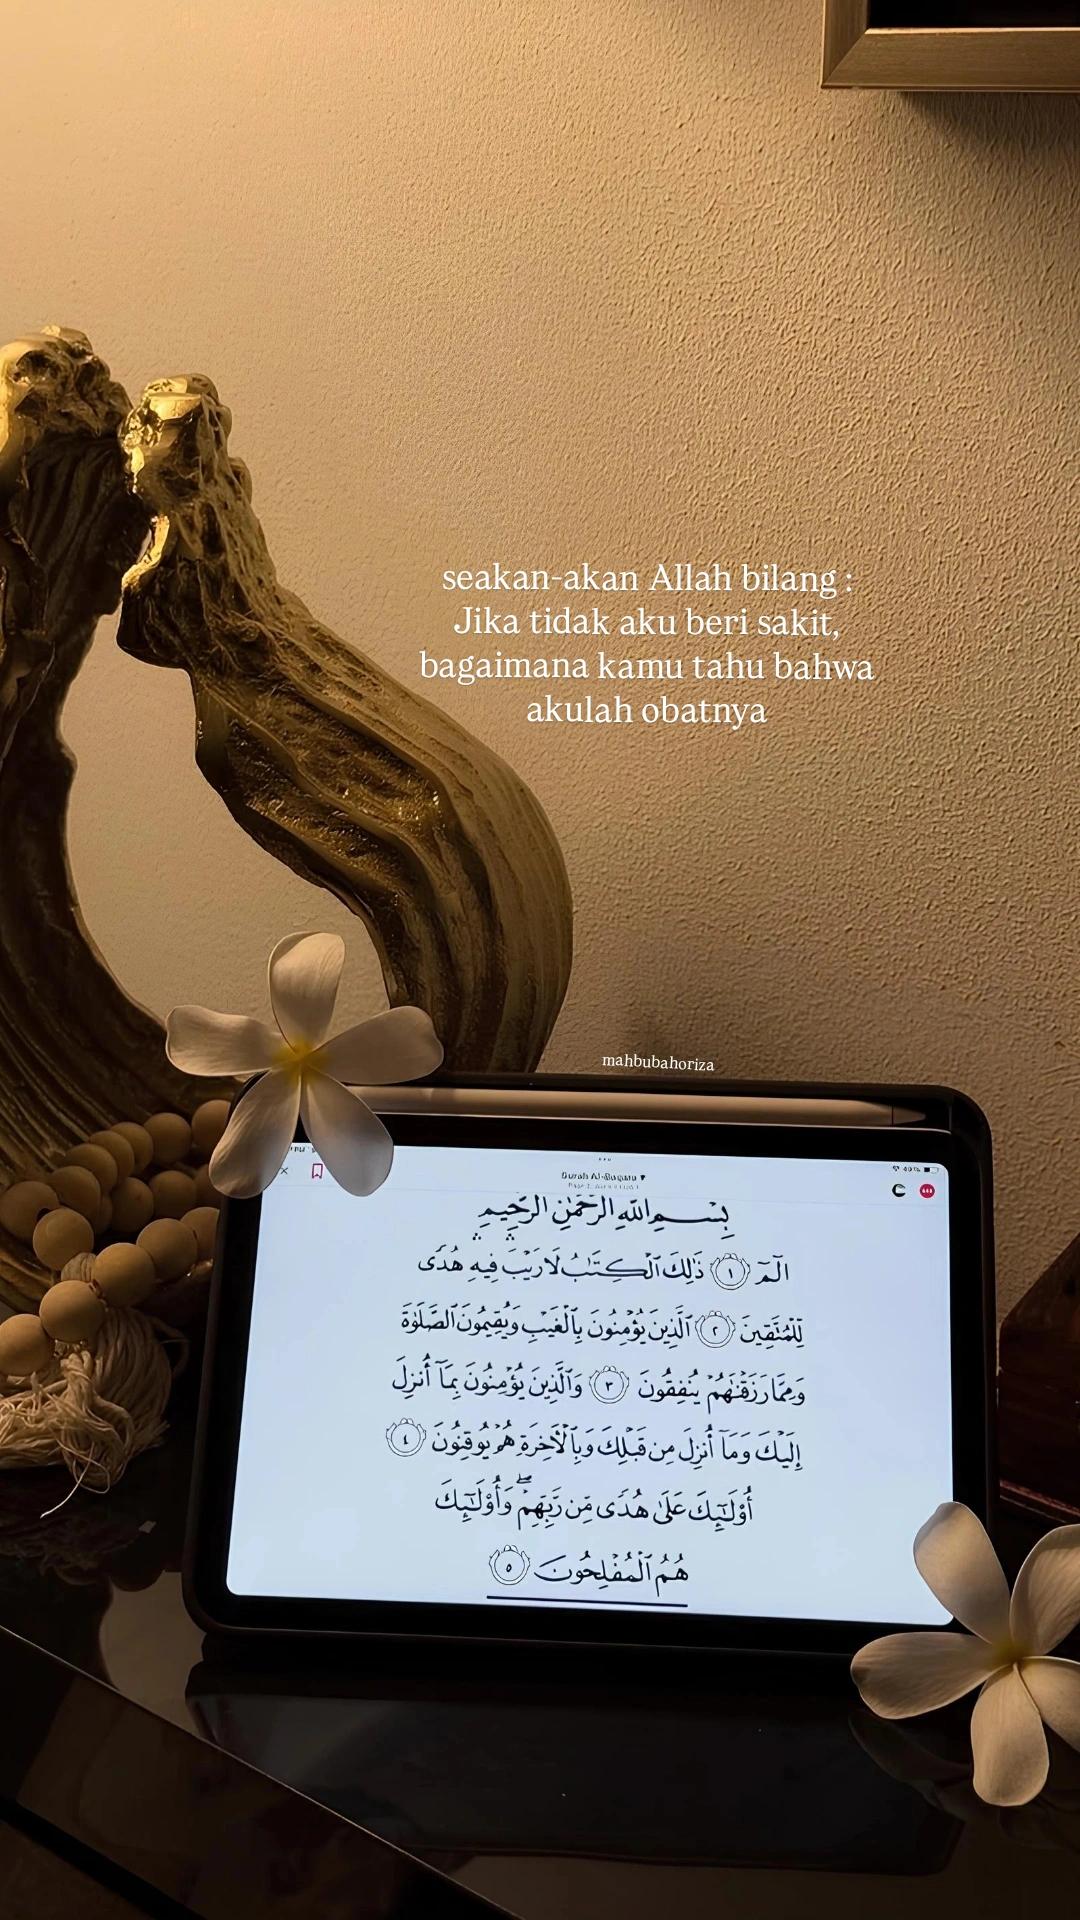 seakan-akan Allah bilang :
Jika tidak aku beri sakit,
bagaimana kamu tahu bahwa
akulah obatnya
mahbubahoriza
49%
بِسْمِ اللَّهِ الرَّحْمَٰنِ الرَّحِيمِ
الٓمٓ ١ ذَٰلِكَ ٱلْكِتَٰبُ لَا رَيْبَ ۛ فِيهِ ۛ هُدًى
لِّلْمُتَّقِينَ ٢ ٱلَّذِينَ يُؤْمِنُونَ بِٱلْغَيْبِ وَيُقِيمُونَ ٱلصَّلَوٰةَ
وَمِمَّا رَزَقْنَٰهُمْ يُنفِقُونَ ٣ وَٱلَّذِينَ يُؤْمِنُونَ بِمَآ أُنزِلَ
إِلَيْكَ وَمَآ أُنزِلَ مِن قَبْلِكَ وَبِٱلْءَاخِرَةِ هُمْ يُوقِنُونَ ٤
أُو۟لَٰٓئِكَ عَلَىٰ هُدًى مِّن رَّبِّهِمْ ۖ وَأُو۟لَٰٓئِكَ
هُمُ ٱلْمُفْلِحُونَ ٥